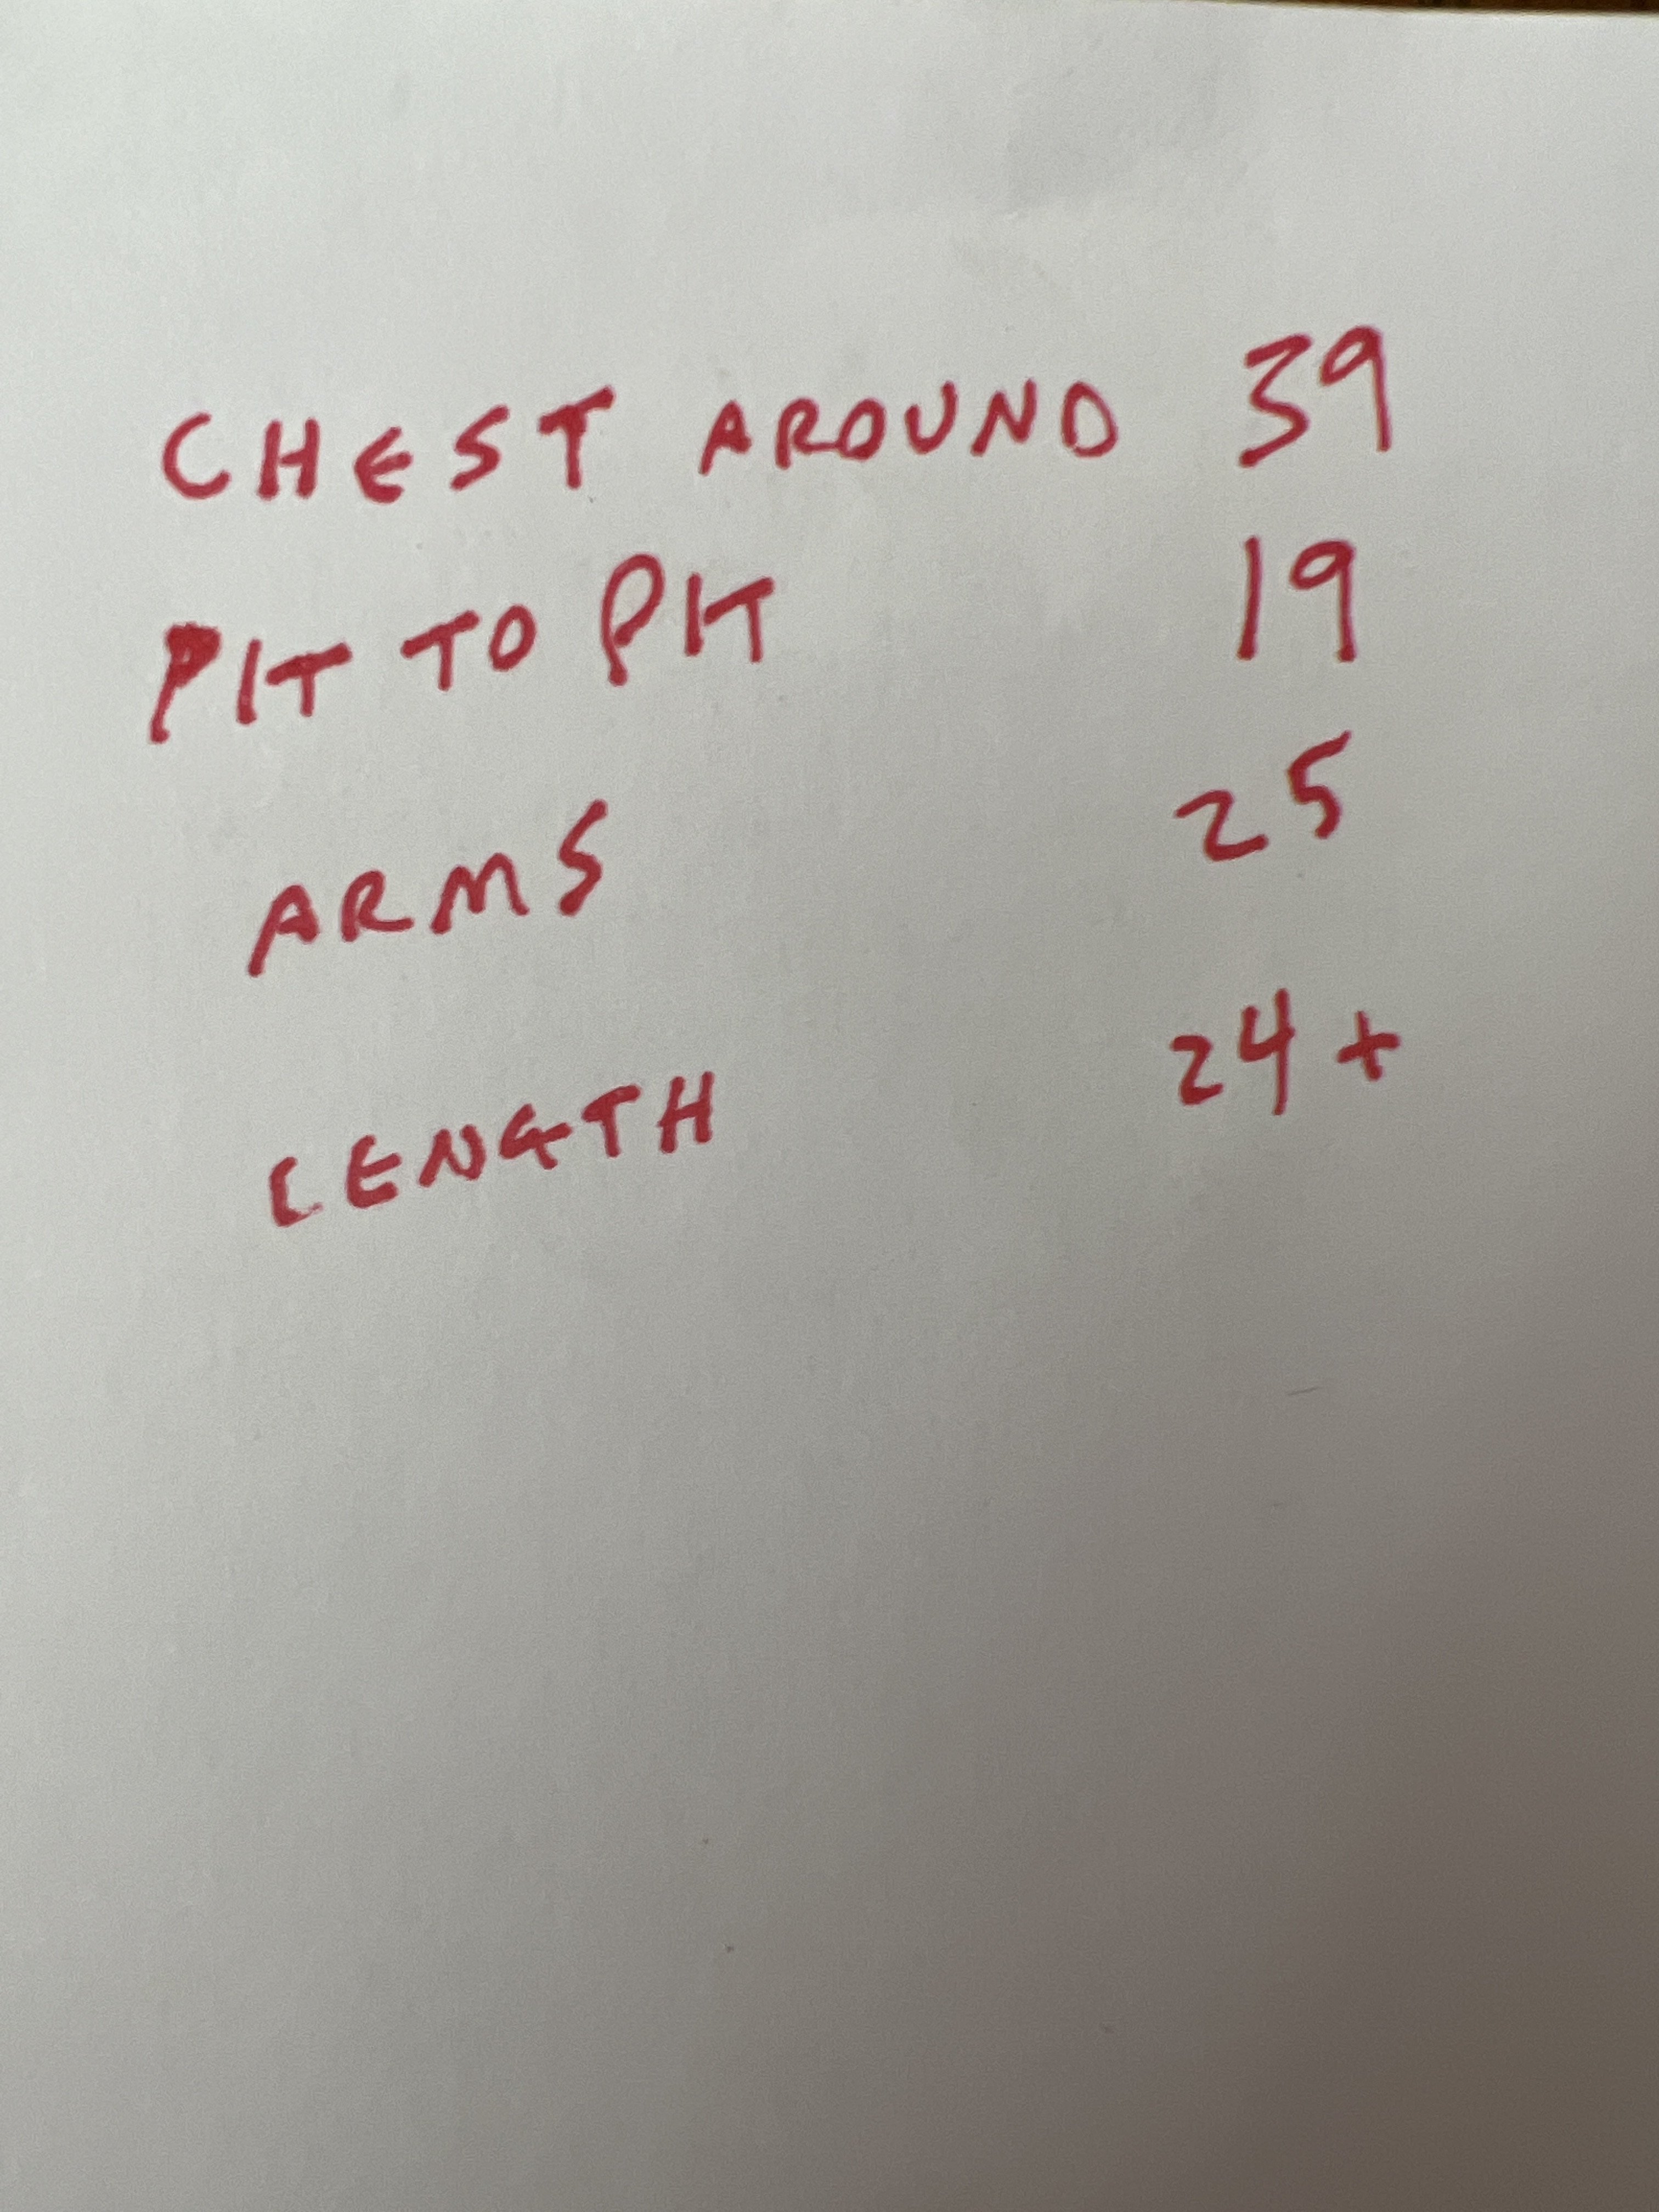 CHEST AROUND 39
PIT TO PIT 19
ARMS 25
LENGTH 24+